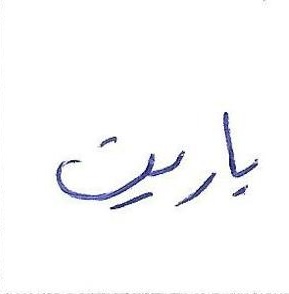 ياريت